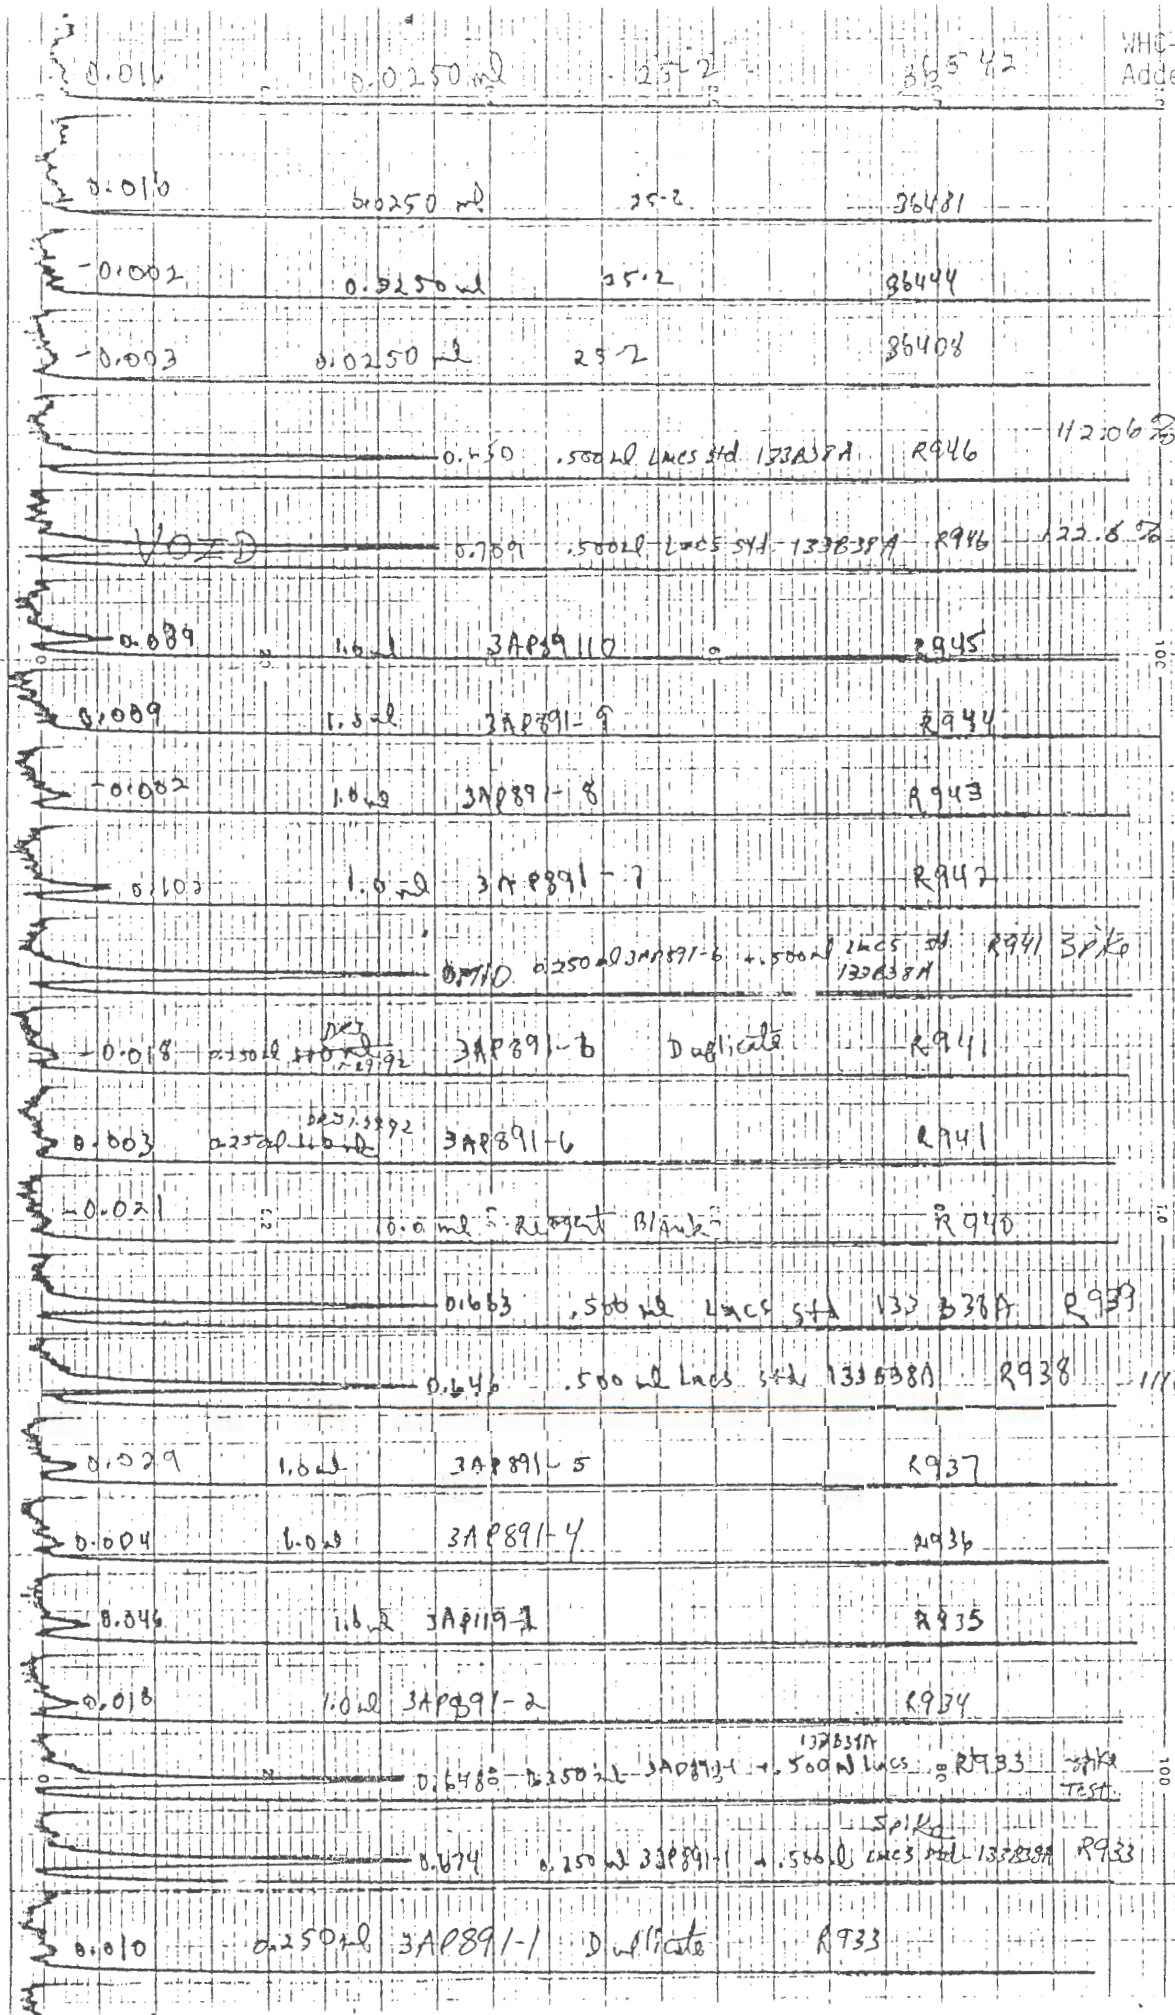 WHC-
0.016 0.0250 ml 25-2 36542
Adde
0.016 0.0250 ml 25-2 36481
-0.002 0.0250 ml 25-2 36444
-0.003 0.0250 ml 25-2 36408
0.650 .500 ml LMCS std 133B38A R946 112.06%
VOID 0.709 .500 ml LMCS std 133B38A R946 122.6%
0.089 1.0 ml 3AP89110 R945
0.009 1.0 ml 3AP891-9 R944
-0.002 1.0 ml 3AP891-8 R943
0.102 1.0 ml 3AP891-7 R942
0.710 0.250 ml 3AP891-6 + .500 ml LMCS std R941 Spike
133B38A
-0.018 0.250 ml 3AP891-6 Duplicate R941
0.003 0.250 ml 1.0 ml 3AP891-6 R941
-0.021 10.0 ml - Reagent Blank - R940
0.663 .500 ml LMCS std 133B38A R939
0.646 .500 ml LMCS std 133B38A R938 111
0.029 1.0 ml 3AP891-5 R937
0.004 1.0 ml 3AP891-4 R936
0.046 1.0 ml R935
0.018 1.0 ml 3AP891-2 R934
133B38A
+ .500 ml LMCS R933 Spike
Test
Spike
0.674 0.250 ml + .500 ml LMCS std 133B38A R933
0.010 0.250 ml 3AP891-1 Duplicate R933